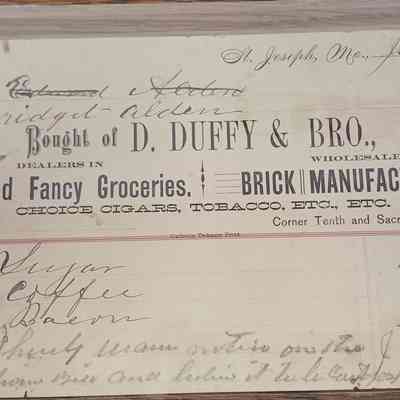 St. Joseph, Mo.,
Edward Alden
Bridget Alden
Bought of D. DUFFY & BRO.,
DEALERS IN WHOLESALE
d Fancy Groceries. BRICK MANUFAC
CHOICE CIGARS, TOBACCO, ETC., ETC.
Corner Tenth and Sacr
Catholic Tribune Print.
Sugar
Coffee
Bacon
notice on the
and believe it to be